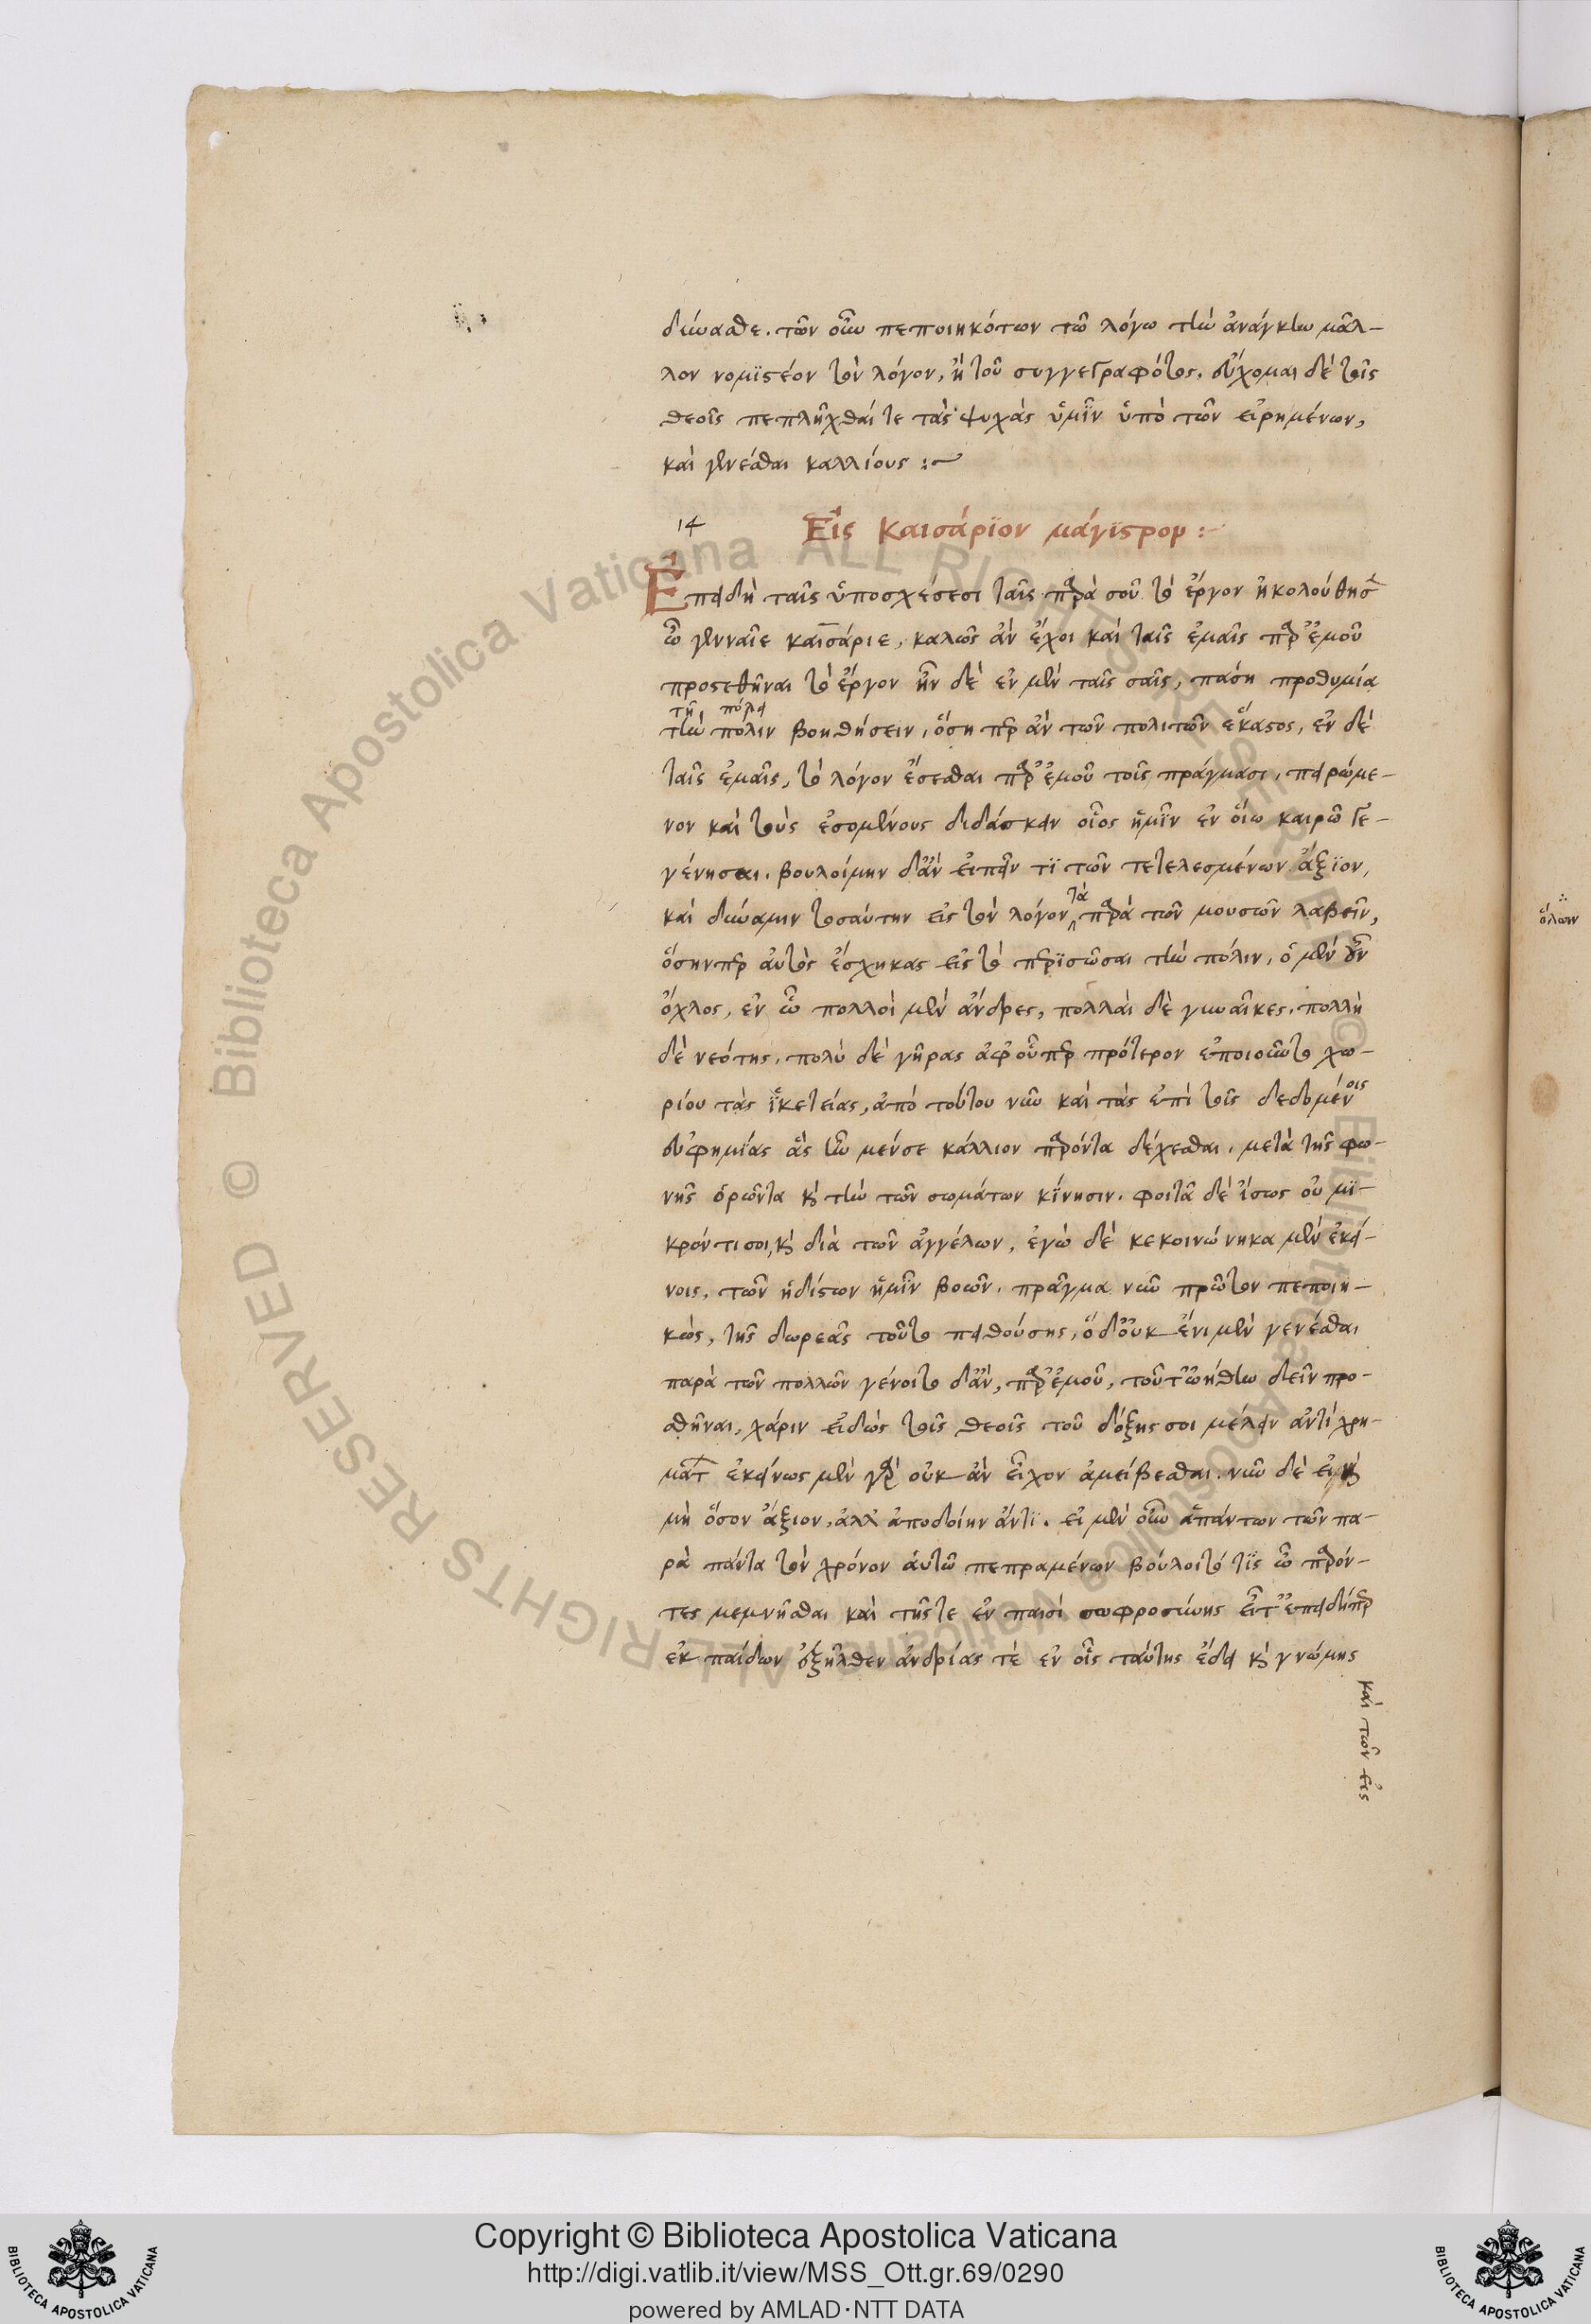 δύνασθε. τῶν οὖν πεποιηκότων τῷ λόγῳ τὴν ἀνάγκην μᾶλ-
λον νομιστέον τὸν λόγον, ἢ τοῦ συγγεγραφότος. εὔχομαι δὲ τοῖς
θεοῖς πεπλῆχθαί τε τὰς ψυχὰς ὑμῖν ὑπὸ τῶν εἰρημένων,
καὶ γενέσθαι καλλίους :~
14 Εἰς Καισάριον μάγιστρον :-
Ἐπειδὴ ταῖς ὑποσχέσεσι ταῖς παρὰ σοῦ τὸ ἔργον ἠκολούθησεν
ὦ γενναῖε καισάριε, καλῶς ἂν ἔχοι καὶ ταῖς ἐμαῖς παρ' ἐμοῦ
προστεθῆναι τὸ ἔργον ἦν δὲ ἐν μὲν ταῖς σαῖς, πάση προθυμία
τῆ πόλει
τὴν πόλιν βοηθήσειν, ὅση περ ἂν τῶν πολιτῶν ἕκαστος, ἐν δὲ
ταῖς ἐμαῖς, τὸ λόγον ἔσεσθαι παρ' ἐμοῦ τοῖς πράγμασι, πειρώμε-
νον καὶ τοὺς ἐσομένους διδάσκειν οἷος ἡμῖν ἐν οἵω καιρῷ γε-
γένησαι. βουλοίμην δ' ἂν εἰπεῖν τι τῶν τετελεσμένων ἄξιον,
καὶ δύναμιν τοσαύτην εἰς τὸν λόγον τὰ παρὰ τῶν μουσῶν λαβεῖν,
ὅσηνπερ αὐτὸς ἔσχηκας εἰς τὸ περισῶσαι τὴν πόλιν. ὁ μὲν οὖν
ὄχλος, ἐν ᾧ πολλοὶ μὲν ἄνδρες, πολλαὶ δὲ γυναῖκες. πολλὴ
δὲ νεότης. πολὺ δὲ γῆρας ἀφ' οὗπερ πρότερον ἐποιοῦντο χω-
ρίου τὰς ἱκετείας, ἀπὸ τούτου νῦν καὶ τὰς ἐπὶ τοῖς δεδομένοις
εὐφημίας ἃς ἦν μέν σε κάλλιον παρόντα δέχεσθαι. μετὰ τῆς φω-
νῆς ὁρῶντα καὶ τὴν τῶν σωμάτων κίνησιν. φοιτᾶ δὲ ἴσως οὐ μι-
κρόν τι σοι, καὶ διὰ τῶν ἀγγέλων, ἐγὼ δὲ κεκοινώνηκα μὲν ἐκεί-
νοις, τῶν ἡδίστων ἡμῖν βοῶν. πρᾶγμα νῦν πρῶτον πεποιη-
κὼς, τῆς δωρεᾶς τοῦτο πειθούσης, ὃ δ' οὐκ ἔνι μὲν γενέσθαι
παρὰ τῶν πολλῶν γένοιτο δ' ἂν, παρ' ἐμοῦ, τοῦτ' ᾠήθην δεῖν προ-
σθῆναι, χάριν εἰδὼς τοῖς θεοῖς τοῦ δόξης σοι μέλειν ἀντὶ χρη-
μάτων ἐκείνως μὲν γὰρ οὐκ ἂν εἶχον ἀμείβεσθαι. νῦν δὲ εἰ καὶ
μὴ ὅσον ἄξιον, ἀλλ' ἀποδοίην ἄντι. εἰ μὲν οὖν ἁπάντων τῶν πα-
ρὰ πάντα τὸν χρόνον αὐτῷ πεπραμένων βούλοιτό τις ὦ παρόν-
τες μεμνῆσθαι καὶ τῆς τε ἐν παισὶ σωφροσύνης εἶτ' ἐπειδήπερ
ἐκ παίδων ἐξῆλθεν ἀνδρίας τὲ ἐν οἷς ταύτης ἔδει καὶ γνώμης
καὶ τῶν εἰς
ὅλων
Copyright © Biblioteca Apostolica Vaticana
http://digi.vatlib.it/view/MSS_Ott.gr.69/0290
powered by AMLAD·NTT DATA